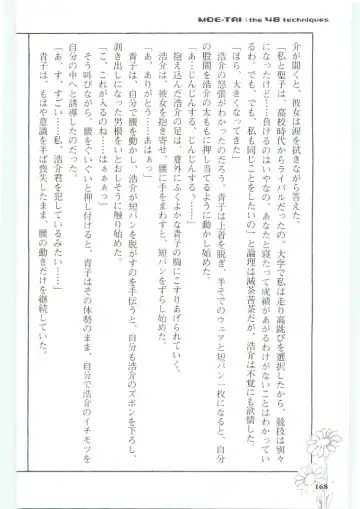 MOE-TAI : the 48 techniques
介が聞くと、彼女は涙を拭きながら答えた。
「私と聖子は、高校時代からライバルだったの。大学で私は走り高跳びを選択したから、競技は別々
になったけど……負けるのはいやなの。あなたと寝たって成績があがるわけがないことはわかって
るわ、でも、でも、私も同じことをしたいの──」と論理は滅茶苦茶だが、浩介は不覚にも欲情した。
「ほら、大きくなってきた」
浩介の怒張がわかったのだろう。青子は上着を脱ぎ、半そでのウェアと短パン一枚になると、自分
の股間を浩介の太ももに押し当てるように動かし始めた。
「あぁ……じんじんする、じんじんするぅ……」
抱え込んだ浩介の足は、意外にふくよかな青子の胸にこすりあげられていく。
浩介は、彼女を抱き寄せ、腰に手をまわすと、短パンをずらし始めた。
「あ、ありがとう……あはぁっ」
青子は、自分で腰を動かし、浩介が短パンを脱がすのを手伝うと、自分も浩介のズボンを下ろし、
剥き出しになった男根をいとおしそうに触り始めた。
「こ、これが入るのね……はぁぁぁっ」
そう叫びながら、腰をぐいぐいと押し付けると、青子はその体勢のまま、自分で浩介のイチモツを
自分の中へと誘導したのだった。
「あ、す、すごい……私、浩介君を犯しているみたい……」
青子は、もはや意識を半ば喪失したまま、腰の動きだけを継続していた。
168